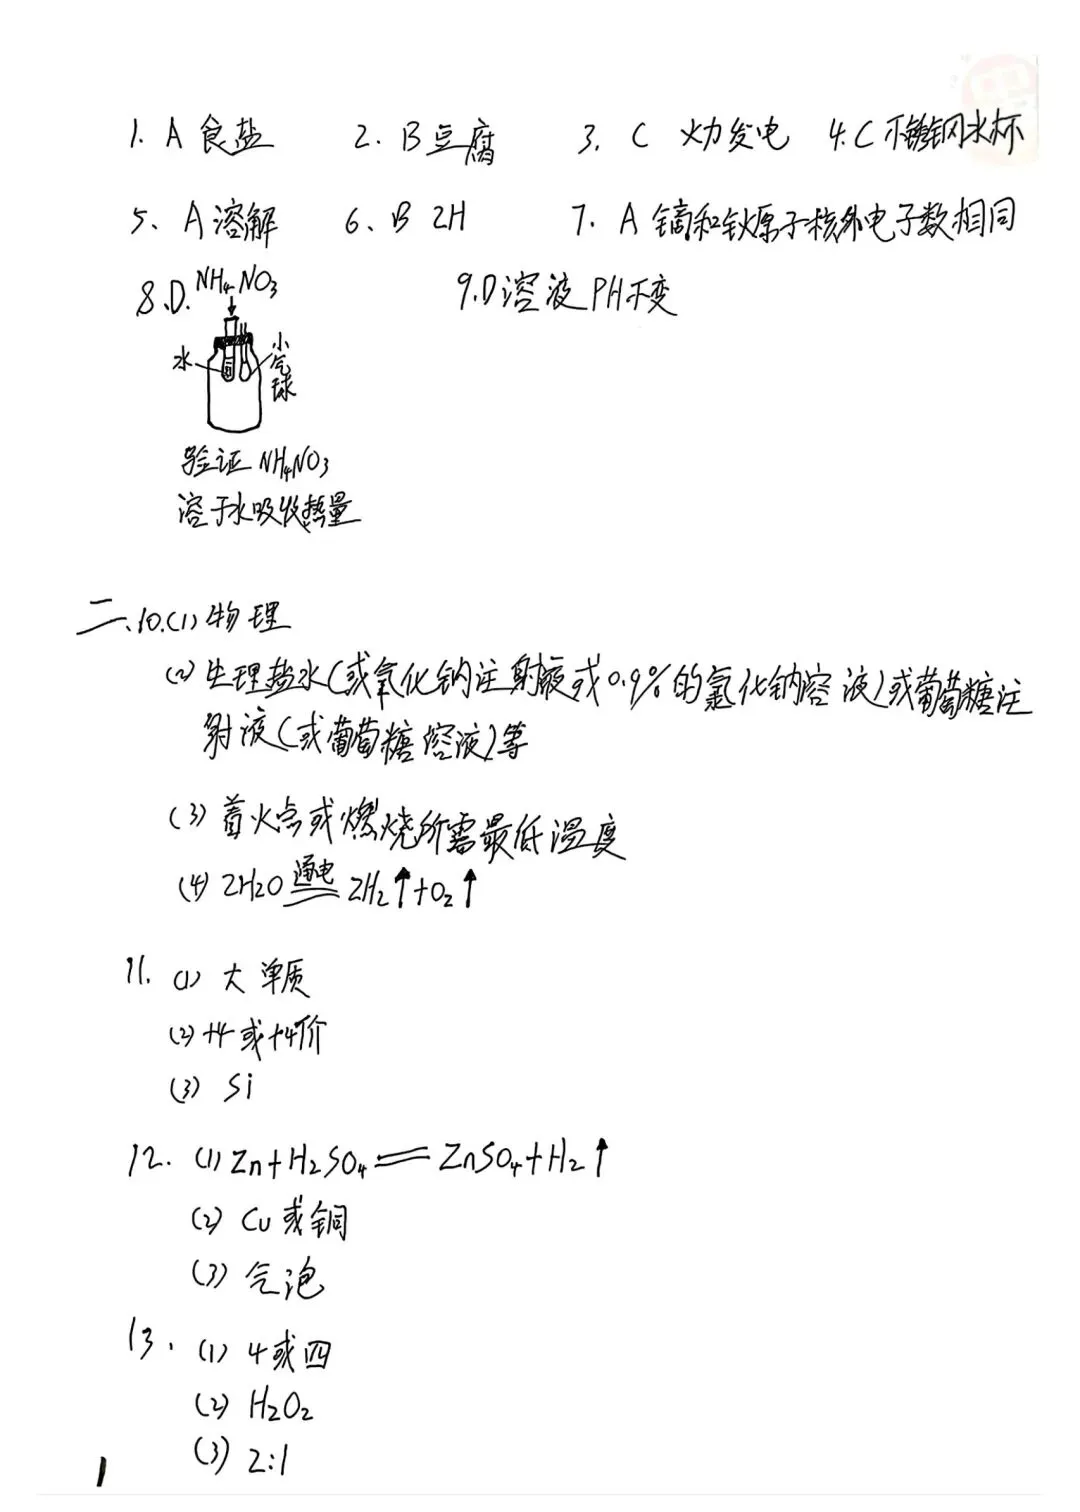 1. A 食盐 2. B 豆腐 3. C 火力发电 4. C 不锈钢水杯
5、A 溶解 6、B 2H 7、A 镝和钬原子核外电子数相同
8、D. NH₄NO₃ 9.D 溶液PH不变
水 小气球
验证 NH₄NO₃
溶于水吸收热量
二、10.(1) 物理
(2) 生理盐水(或氧化钠注射液或0.9%的氯化钠溶液)或葡萄糖注
射液(或葡萄糖溶液)等
(3) 着火点或燃烧所需最低温度
(4) 2H₂O 通电 2H₂↑+O₂↑
11. (1) 大 单质
(2) +4 或 +4价
(3) Si
12. (1) Zn+H₂SO₄ == ZnSO₄+H₂↑
(2) Cu或铜
(3) 气泡
13. (1) 4或四
(2) H₂O₂
(3) 2:1
1